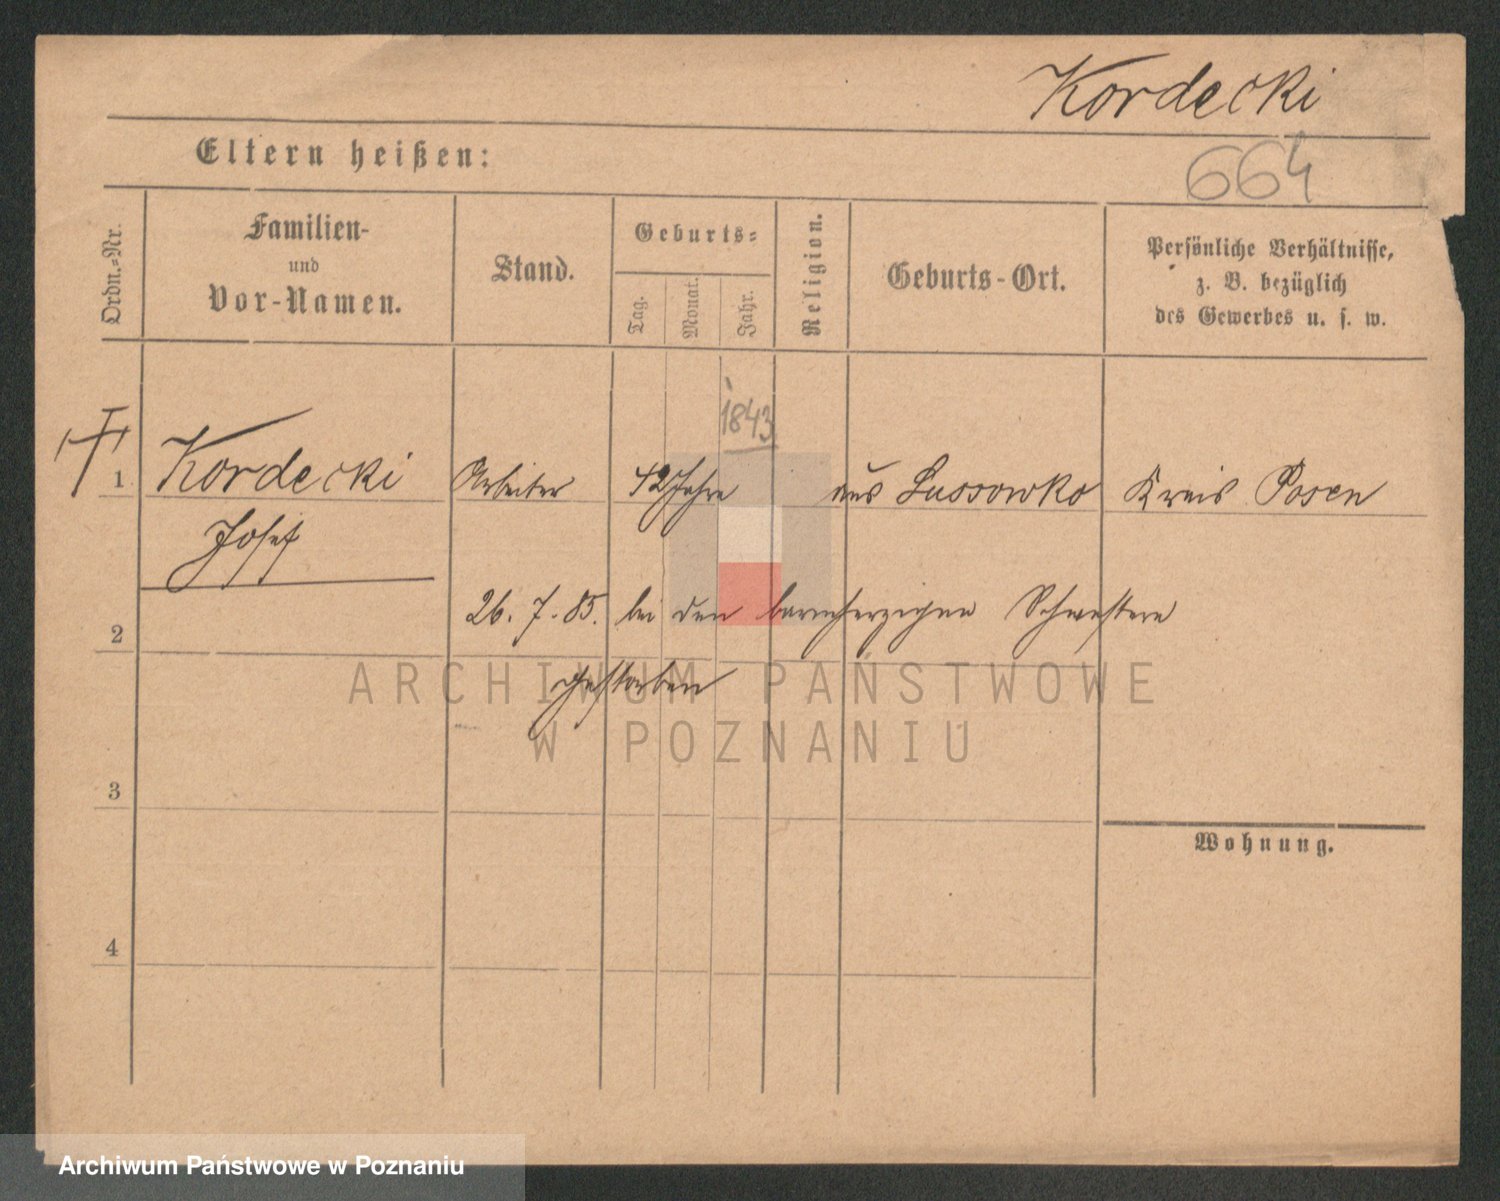 Kordecki
Eltern heißen:
664
Ordn.-Nr.
Familien-
und
Vor-Namen.
Stand.
Geburts-
Tag.
Monat.
Jahr.
Religion.
Geburts-Ort.
Persönliche Verhältnisse,
z. B. bezüglich
des Gewerbes u. s. w.
1843
1 Kordecki Arbeiter 42 Jahre aus Lussowko Kreis Posen
Josef
26. 7. 85. bei den barmherzigen Schwestern
2
gestorben
ARCHIWUM PAŃSTWOWE
W POZNANIU
3
Wohnung.
4
Archiwum Państwowe w Poznaniu